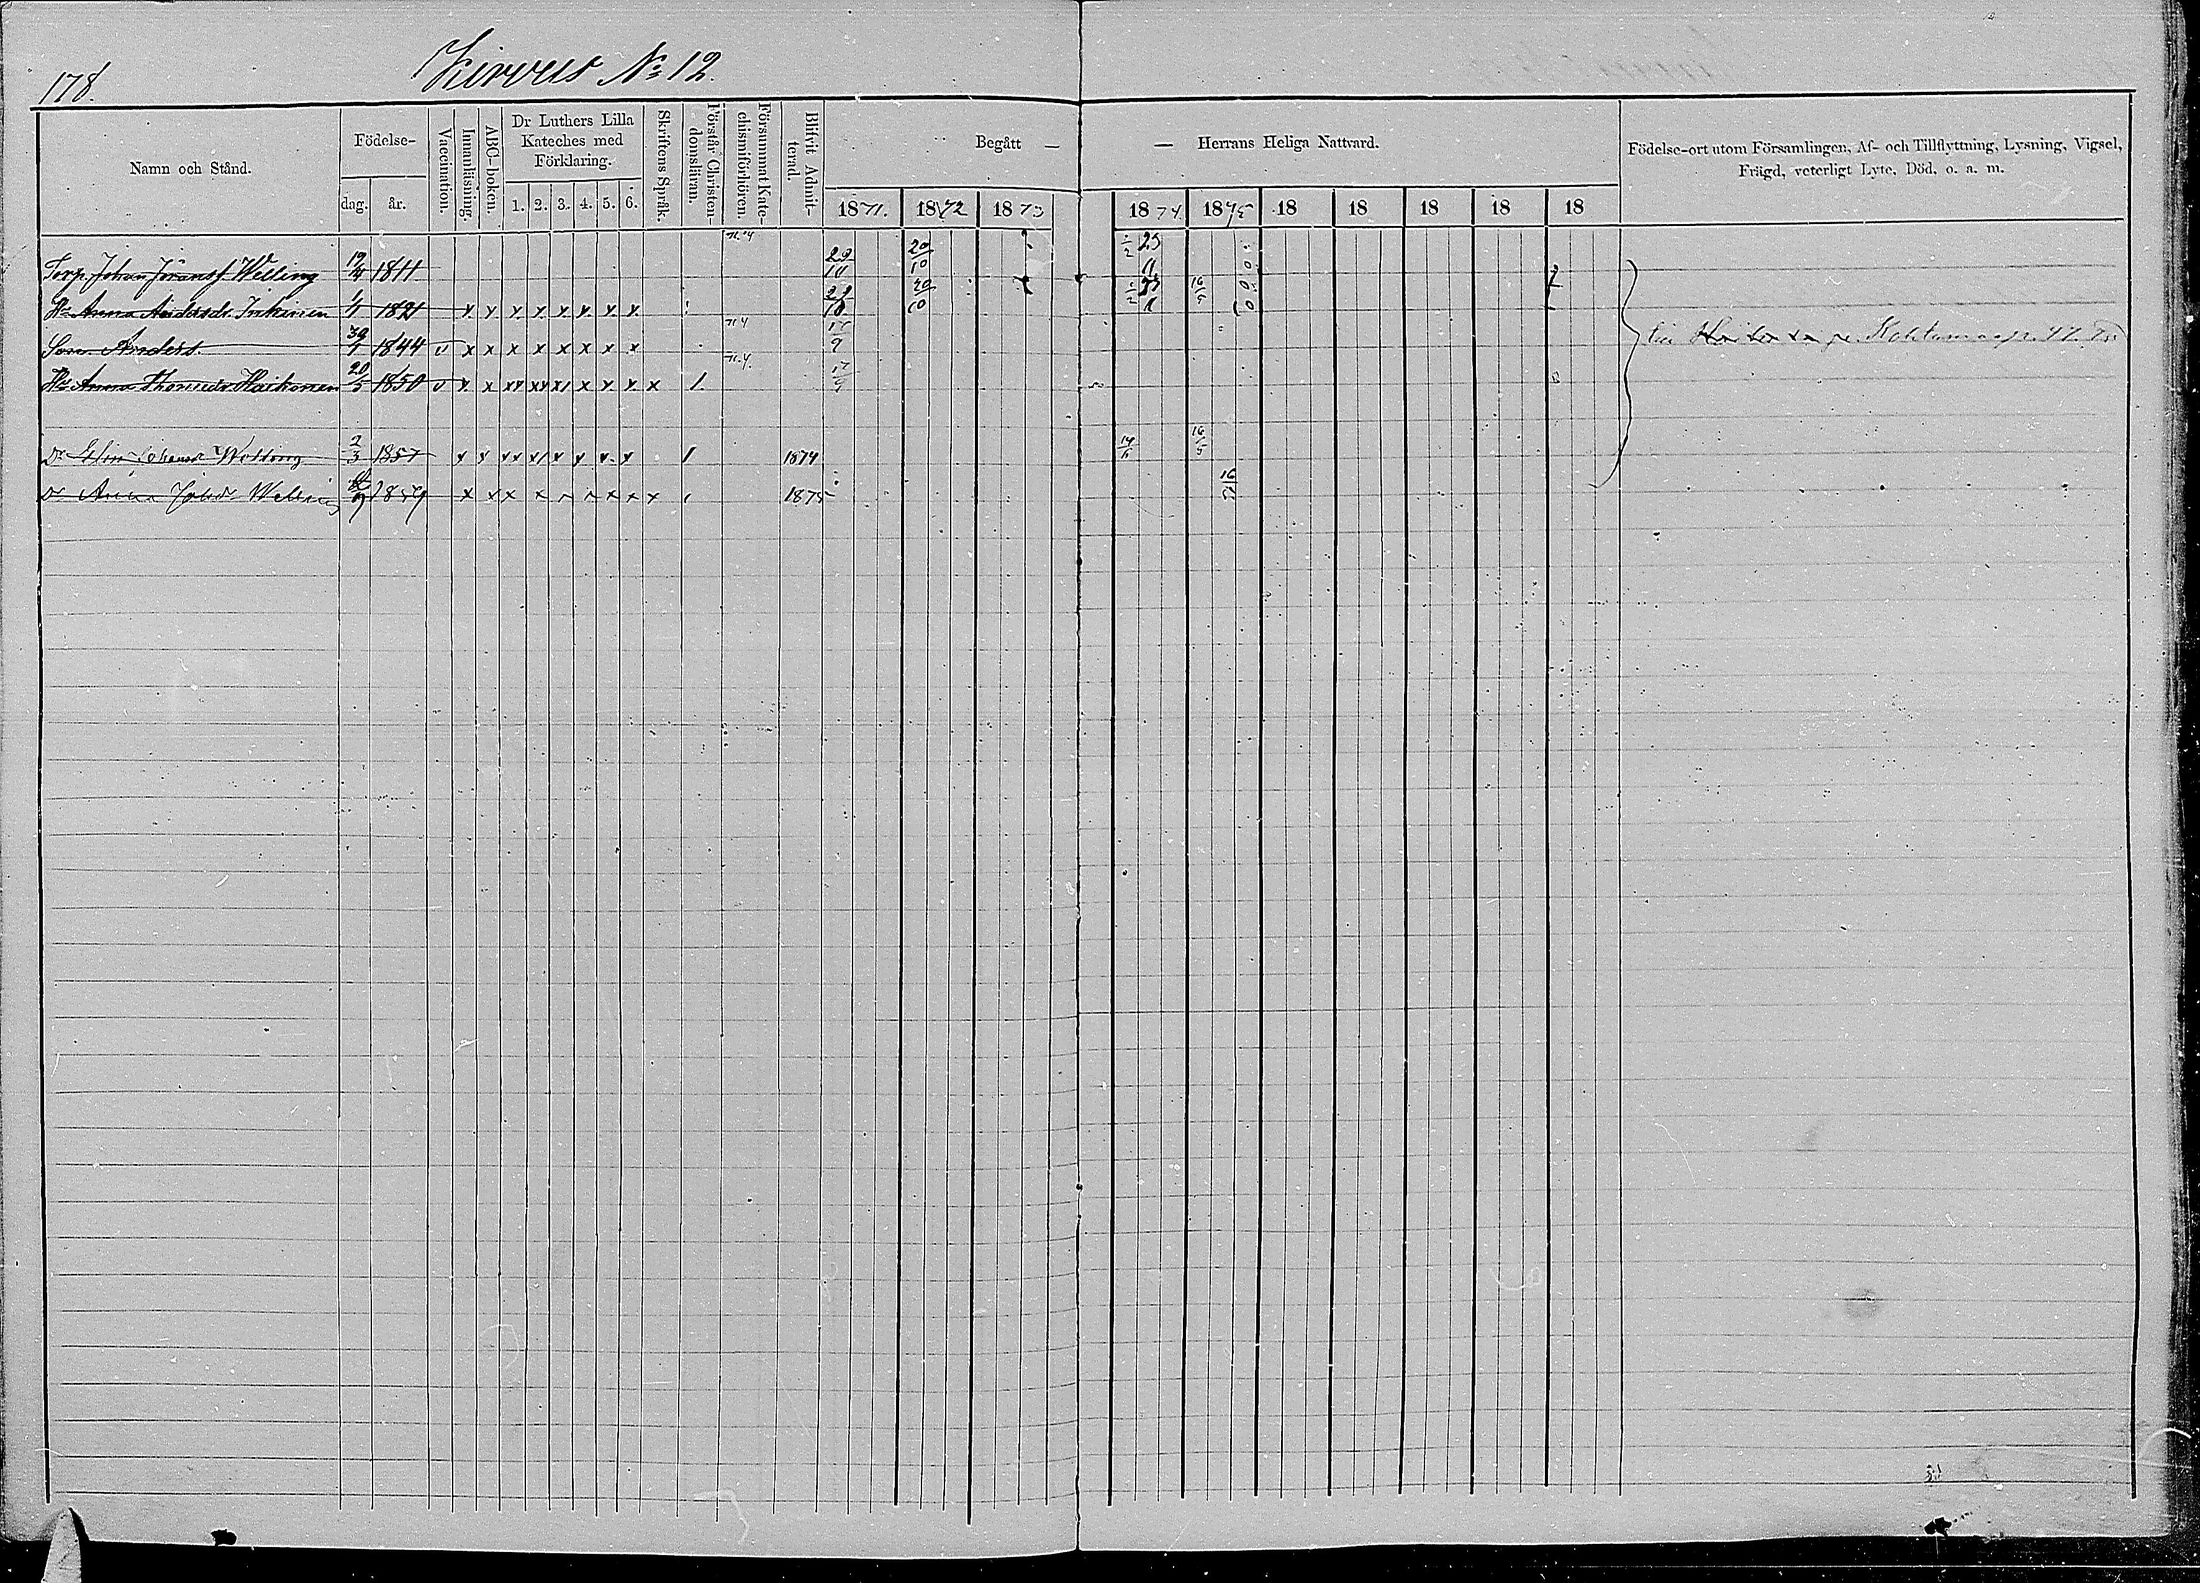 178.
Kirvus № 12.
Namn och Stånd.
Födelse-
dag.
år.
Vaccination.
Innanläsning.
ABC-boken.
Dr Luthers Lilla
Kateches med
Förklaring.
1. 2. 3. 4. 5. 6.
Skriftens Språk.
Förstår Christen-
domsläran.
Försummat Kate-
chismiförhören.
Blifvit Admit-
terad.
Begått — — Herrans Heliga Nattvard.
1871. 1872 1873 1874. 1875 18 18 18 18 18
Födelse-ort utom Församlingen, Af- och Tillflyttning, Lysning, Vigsel,
Frägd, veterligt Lyte, Död, o. a. m.
Torp. Johan Göransf. Welling 1811 29/10 20/10
Hu Anna Andersdr Inkinen 1/1 1821 x x x x x x x x 20/10 16/5
Son Anders. 1844 v x x x x x x x x 17/9
Hu Anna Thomasdr Haikonen 20/5 1850 v x x x x x x x x x 1. 17/9
Dr Elin Johansdr Welling 2/3 1857 x x x x x x x x 1 1874 16/5
Dr Anna Johdr Welling 1859 x x x x x x x x x 1875 16/5